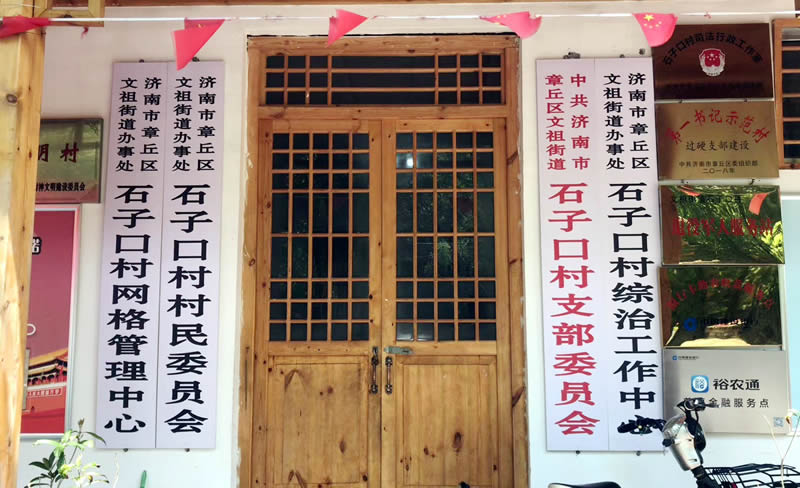 济南市章丘区
文祖街道办事处
石子口村网格管理中心
济南市章丘区
文祖街道办事处
石子口村村民委员会
中共济南市
章丘区文祖街道
石子口村支部委员会
济南市章丘区
文祖街道办事处
石子口村综治工作中
明村
精神文明建设委员会
石子口村司法行政工作室
第一书记示范村
过硬支部建设
中共济南市章丘区委组织部
二〇一八年
退役军人服务站
裕农通
金融服务点